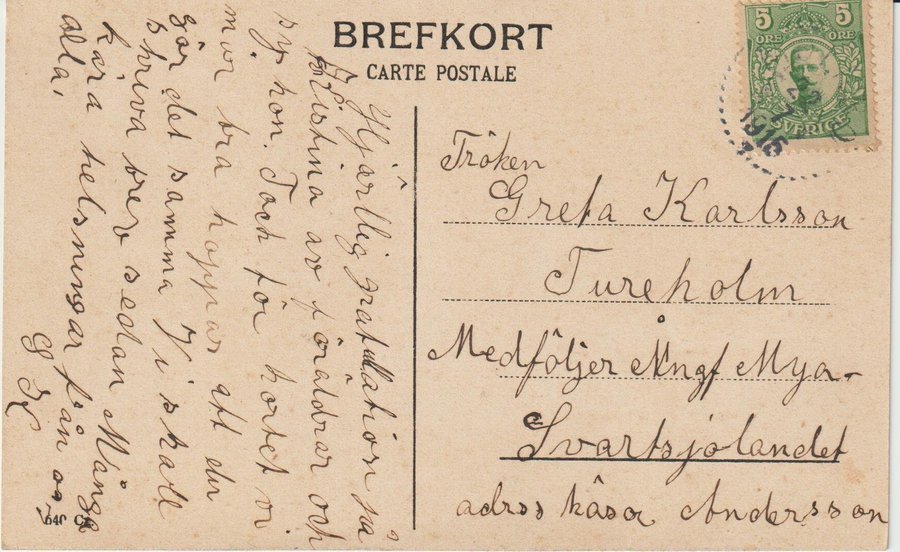 BREFKORT
CARTE POSTALE
5 5
ÖRE ÖRE
SVERIGE
1915
Hjärtlig gratulation på
Kristina av föräldrar och
syskon. Tack för kortet vi
mor bra hoppas att du
gör det samma Vi skall
skriva brev sedan Många
kära helsningar från oss
alla,
Fröken
Greta Karlsson
Tureholm
Medföljer Ångf Mya-
Svartsjölandet
adrss kåsör Andersson